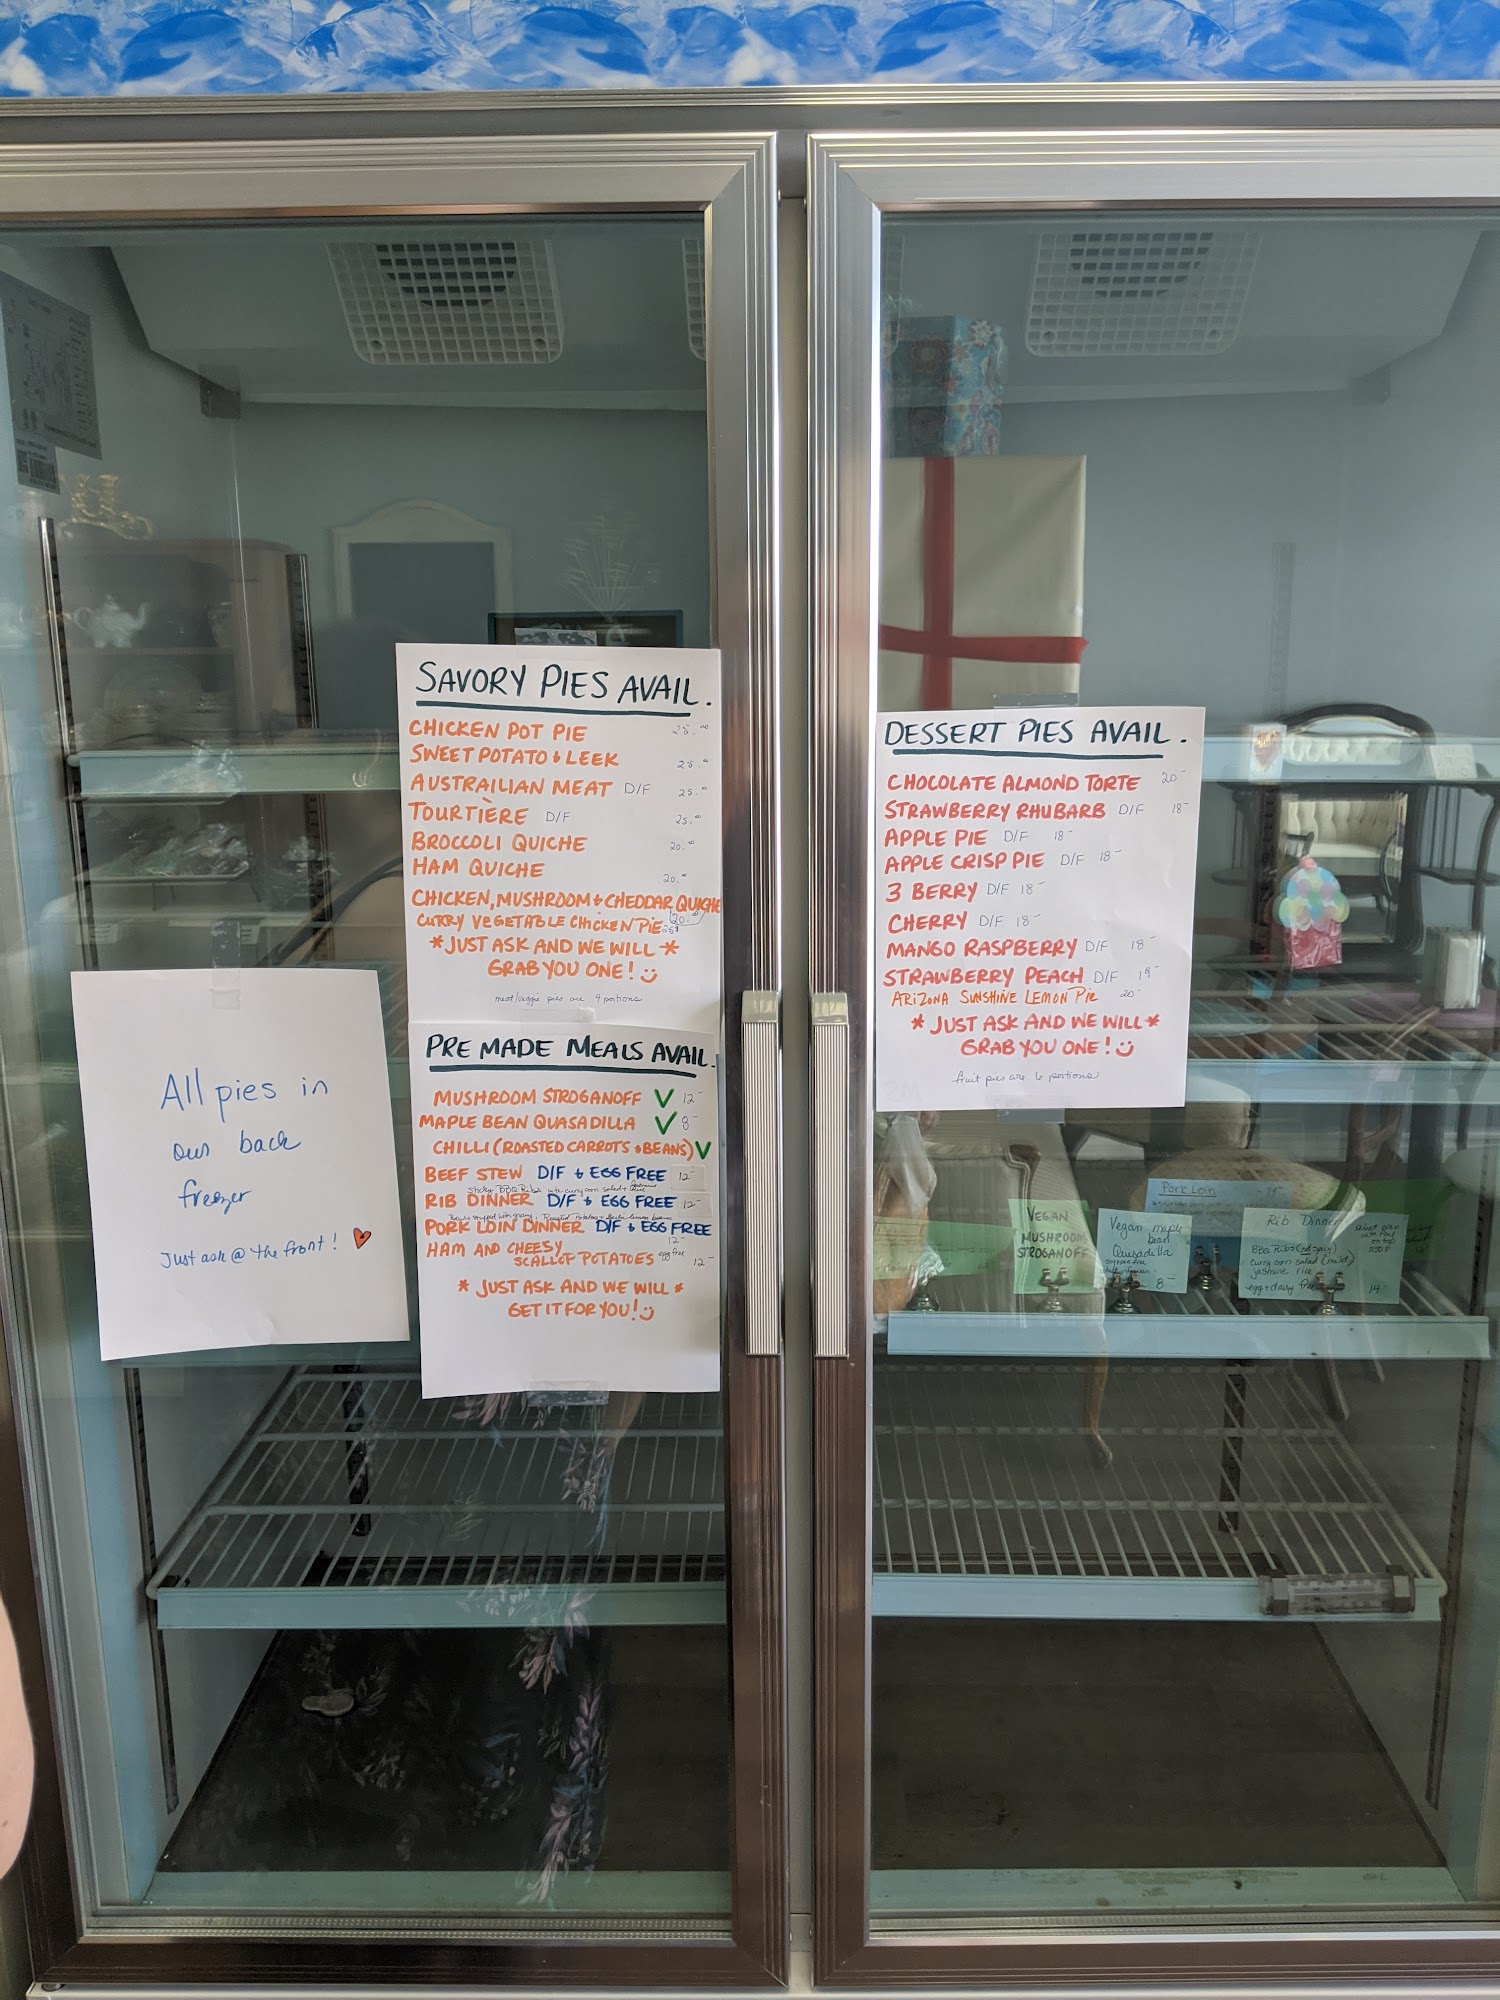 SAVORY PIES AVAIL.
CHICKEN POT PIE 25.00
SWEET POTATO & LEEK 25.00
AUSTRAILIAN MEAT D/F 25.00
TOURTIÈRE D/F 25.00
BROCCOLI QUICHE 20.00
HAM QUICHE 20.00
CHICKEN, MUSHROOM + CHEDDAR QUICHE 20.
CURRY VEGETABLE CHICKEN PIE
*JUST ASK AND WE WILL*
GRAB YOU ONE!
meat/veggie pies are 4 portions
All pies in
our back
freezer
Just ask @ the front!
PRE MADE MEALS AVAIL.
MUSHROOM STROGANOFF V 12-
MAPLE BEAN QUASADILLA V 8-
CHILLI (ROASTED CARROTS + BEANS) V
BEEF STEW D/F & EGG FREE 12-
Sticky BBQ Ribs with curry corn salad +
RIB DINNER D/F & EGG FREE 12-
PORK LOIN DINNER D/F & EGG FREE
12-
HAM AND CHEESY
SCALLOP POTATOES egg free 12-
*JUST ASK AND WE WILL*
GET IT FOR YOU!
DESSERT PIES AVAIL.
CHOCOLATE ALMOND TORTE 20-
STRAWBERRY RHUBARB D/F 18-
APPLE PIE D/F 18-
APPLE CRISP PIE D/F 18-
3 BERRY D/F 18-
CHERRY D/F 18-
MANGO RASPBERRY D/F 18-
STRAWBERRY PEACH D/F 19-
ARIZONA SUNSHINE LEMON PIE 20-
*JUST ASK AND WE WILL*
GRAB YOU ONE!
fruit pies are 6 portions
Pork Loin
VEGAN
MUSHROOM
STROGANOFF
Vegan maple
bean
Quesadilla
8-
Rib Dinner
BBQ Ribs (not spicy)
curry corn salad
jasmine rice
egg + dairy free 14-